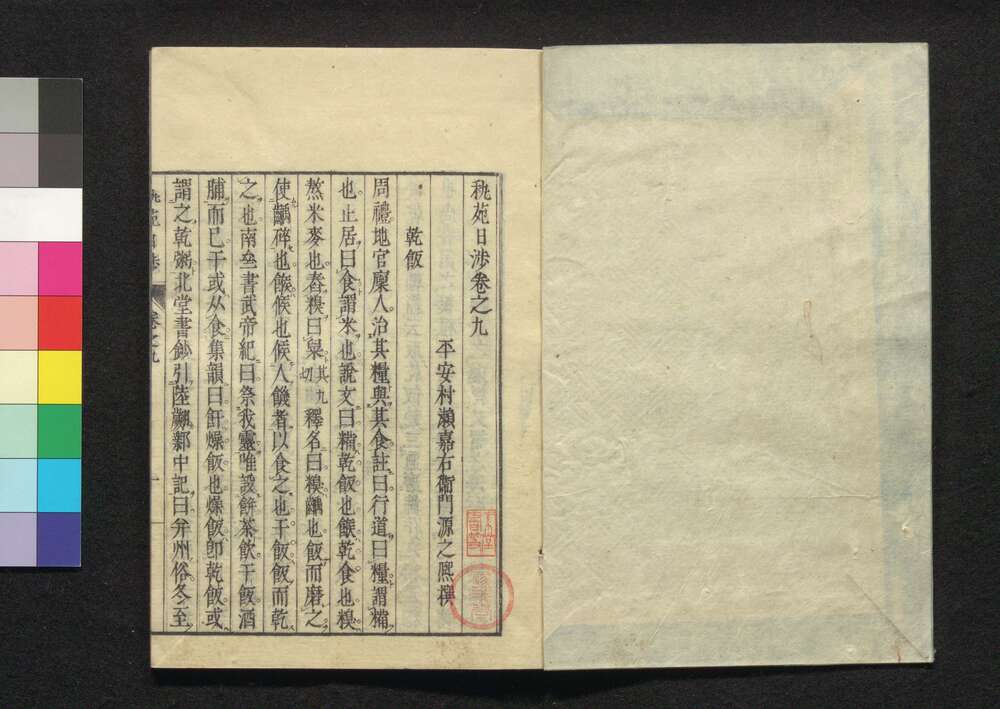 秇苑日渉卷之九
平安村瀬嘉右衞門源之熈撰
乾飯
周禮地官廩人治其糧與其食註曰行道曰糧謂糒
也止居曰食謂米也說文曰糒乾飯也餱乾食也糗
熬米麥也舂糗曰㮀其九切釋名曰糗齲也飯而磨之
使齲碎也餱候也候人饑者以食之也干飯飯而乾
之也南齊書武帝紀曰祭我靈唯設餅茶飮干飯酒
脯而已干或从食集韻曰飦燥飯也燥飯卽乾飯或
謂之乾粥北堂書鈔引陸翽鄴中記曰幷州俗冬至
秇苑日渉 卷之九 一